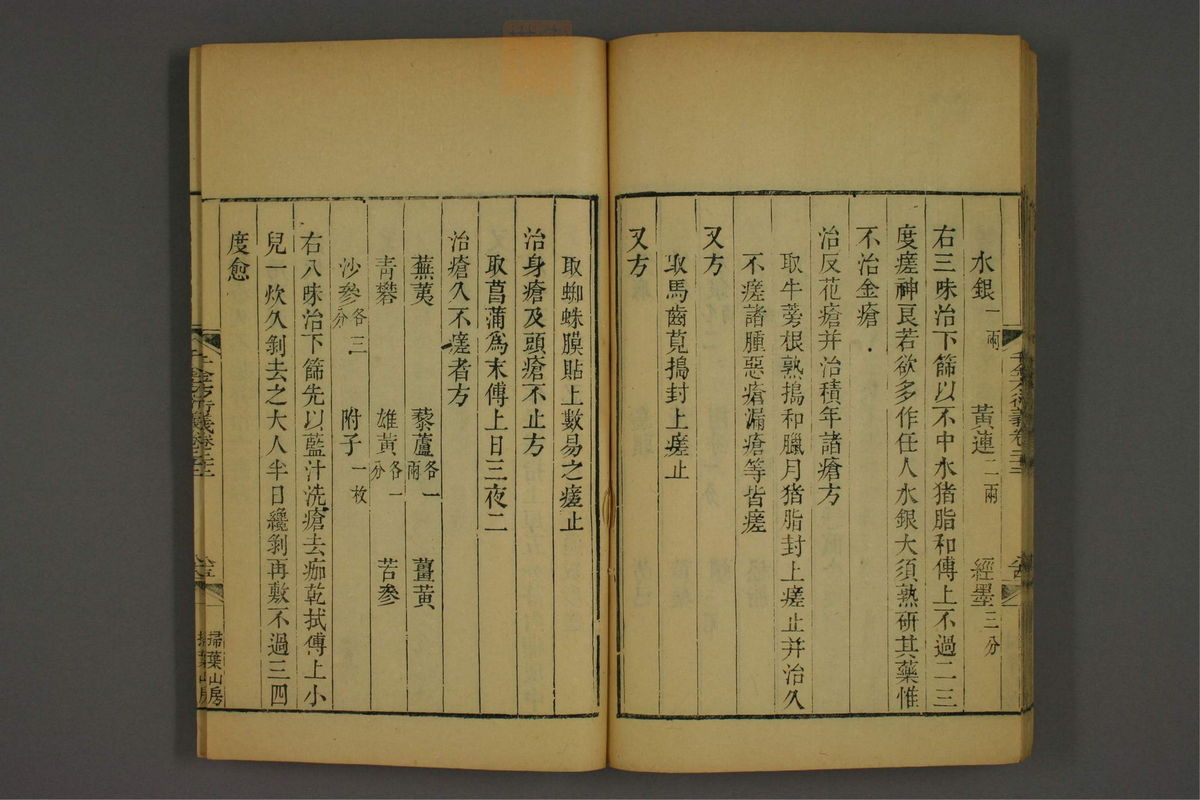 水銀一兩 黃連二兩 經墨三分
右三味治下篩以不中水猪脂和傅上不過二三
度瘥神良若欲多作任人水銀大須熟研其藥惟
不治金瘡
治反花瘡并治積年諸瘡方
取牛蒡根熟搗和臘月猪脂封上瘥止并治久
不瘥諸腫惡瘡漏瘡等皆瘥
又方
取馬齒莧搗封上瘥止
又方
取蜘蛛膜貼上數易之瘥止
治身瘡及頭瘡不止方
取菖蒲為末傅上日三夜二
治瘡久不瘥者方
蕪荑 藜蘆各一兩 薑黃
青礬 雄黃各一分 苦參
沙參各三分 附子一枚
右八味治下篩先以藍汁洗瘡去痂乾拭傅上小
兒一炊久剝去之大人半日纔剝再敷不過三四
度愈
千金方衍義卷二十二
掃葉山房